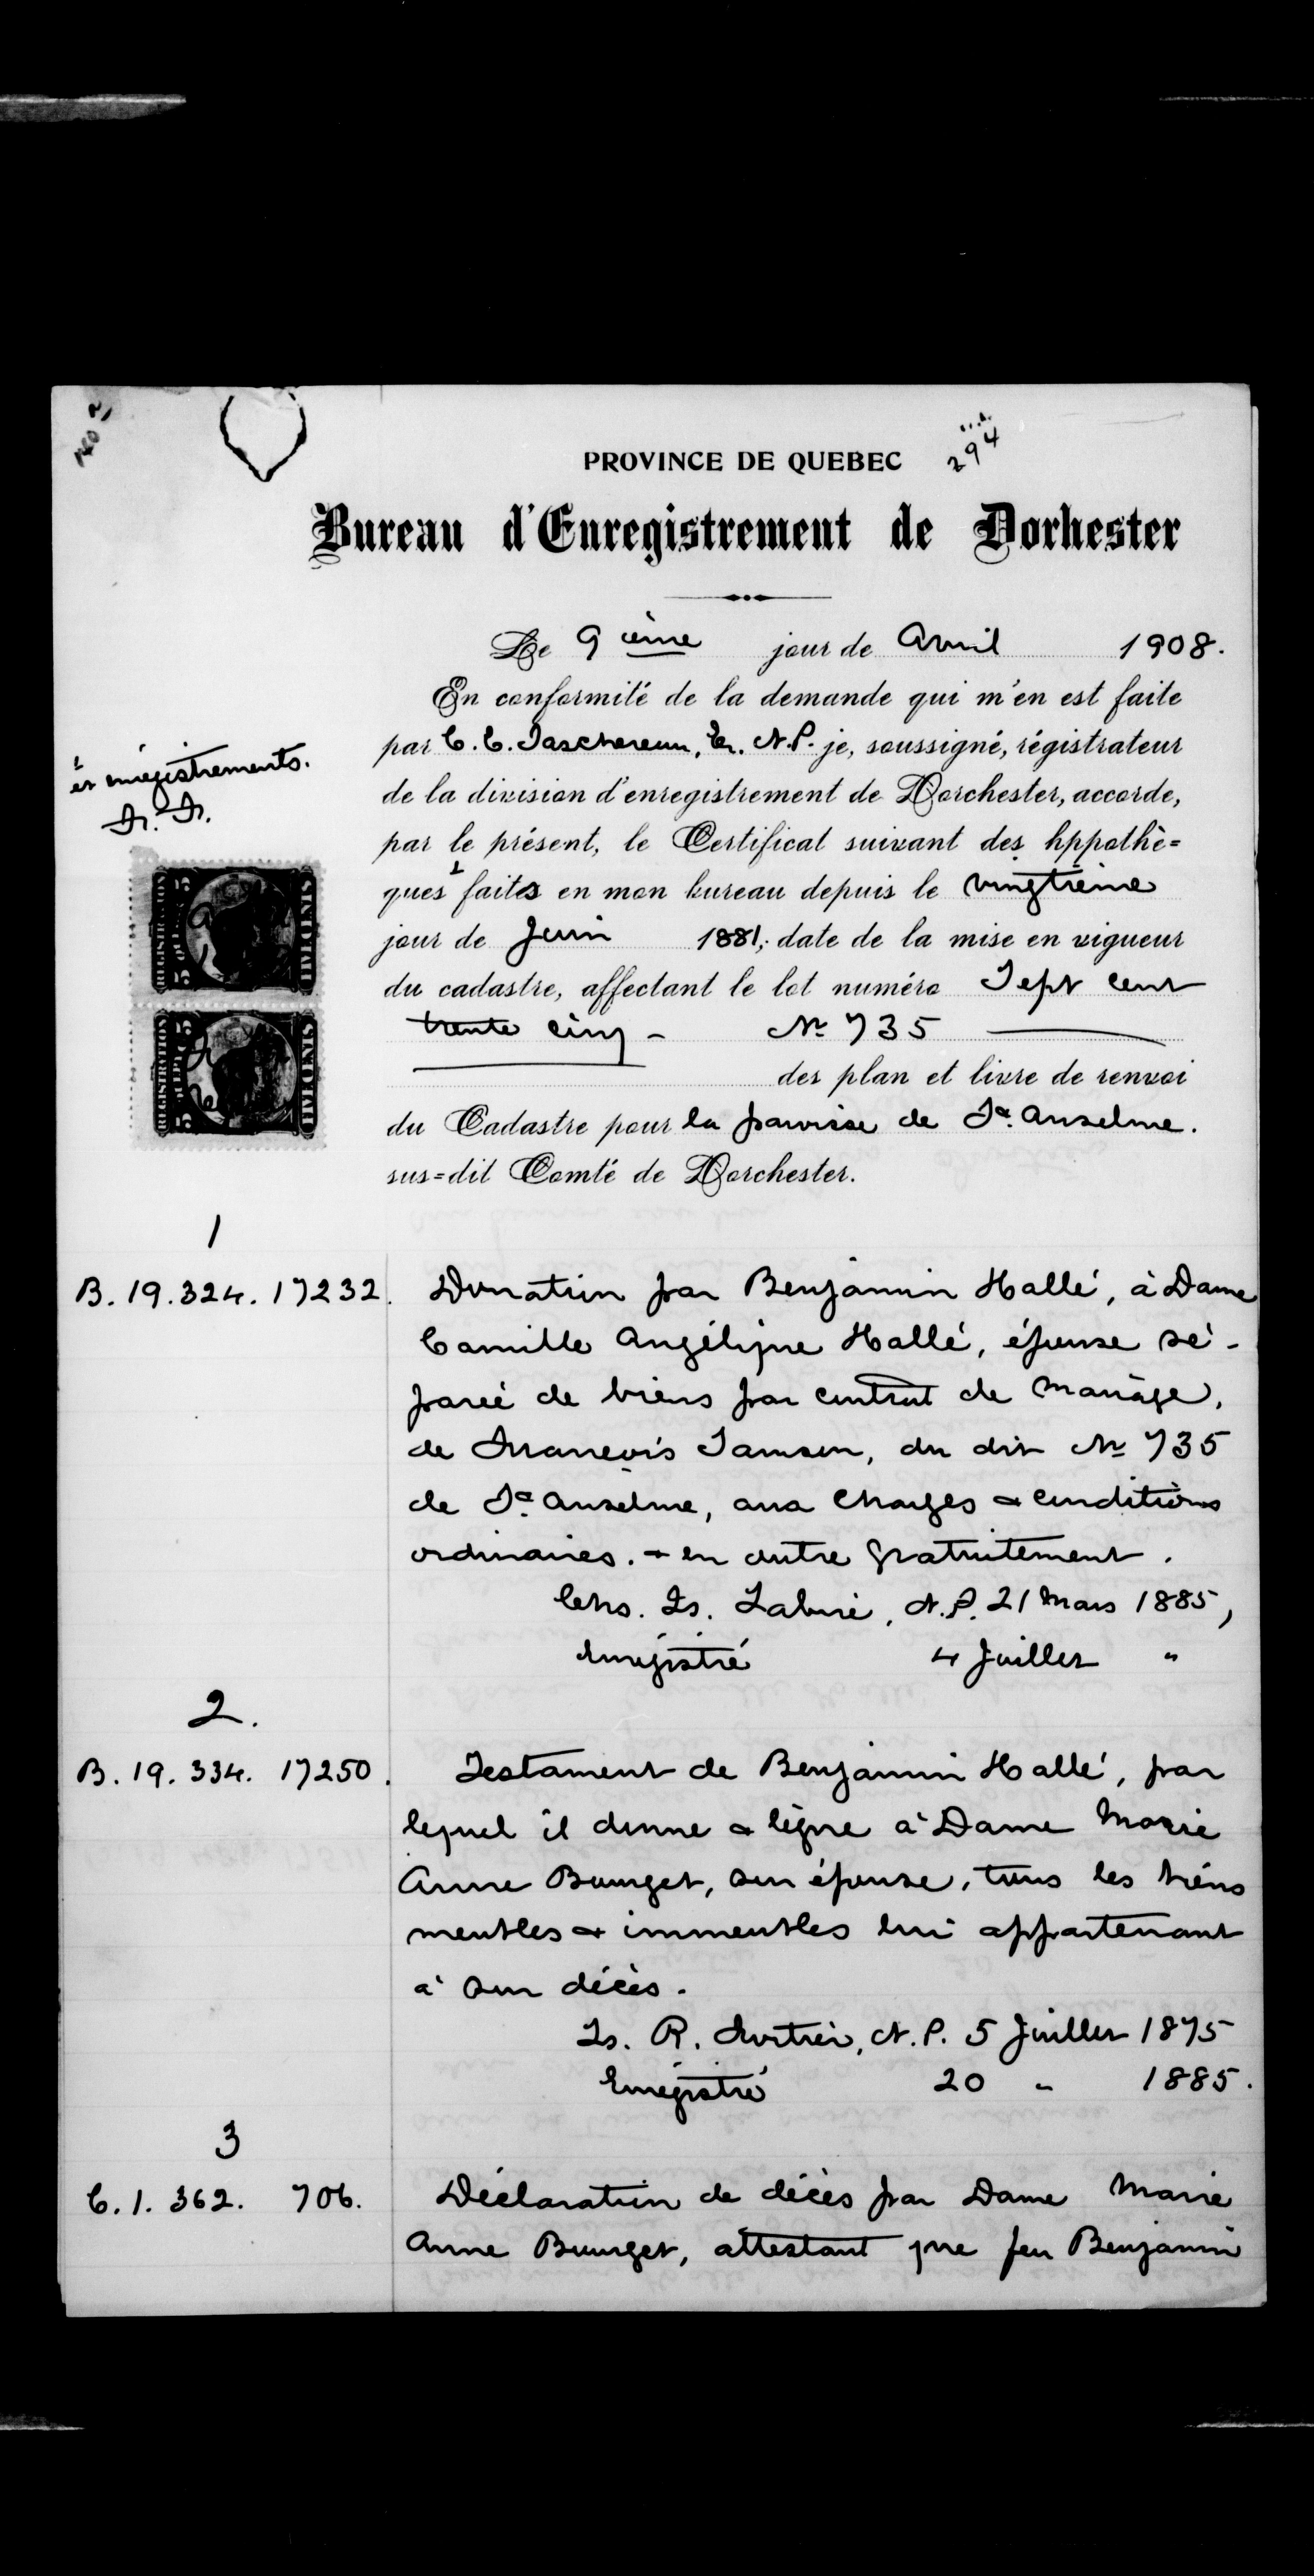 294
PROVINCE DE QUEBEC
Bureau d'Enregistrement de Dorhester
Le 9 ième jour de Avril 1908.
En conformité de la demande qui m'en est faite
par C. C. Taschereau, Er. N.P. je, soussigné, régistrateur
de la division d'enregistrement de Dorchester, accorde,
par le présent, le Certificat suivant des hppothè=
ques faites en mon bureau depuis le vingtième
jour de Juin 1881, date de la mise en vigueur
du cadastre, affectant le lot numéro Sept cent
trente cinq - No 735
des plan et livre de renvoi
du Cadastre pour la paroisse de St. Anselme.
sus=dit Comté de Dorchester.
et enregistrements.
REGISTRATION
REGISTRATION
1
B. 19. 324. 17232.
Donation par Benjamin Hallé, à Dame
Camille Angélique Hallé, épouse sé-
parée de biens par contrat de mariage,
de François Samson, du dit No 735
de St. Anselme, aux charges & conditions
ordinaires. & en outre gratuitement.
N.P. 21 Mars 1885,
Enregistré 4 Juillet "
2.
B. 19. 334. 17250.
Testament de Benjamin Hallé, par
lequel il donne & lègue à Dame Marie
Anne Bourget, son épouse, tous les biens
meubles & immeubles lui appartenant
à son décès.
N.P. 5 Juillet 1875
Enregistré 20 " 1885.
3
C. 1. 362. 706.
Déclaration de décès par Dame Marie
Anne Bourget, attestant que feu Benjamin